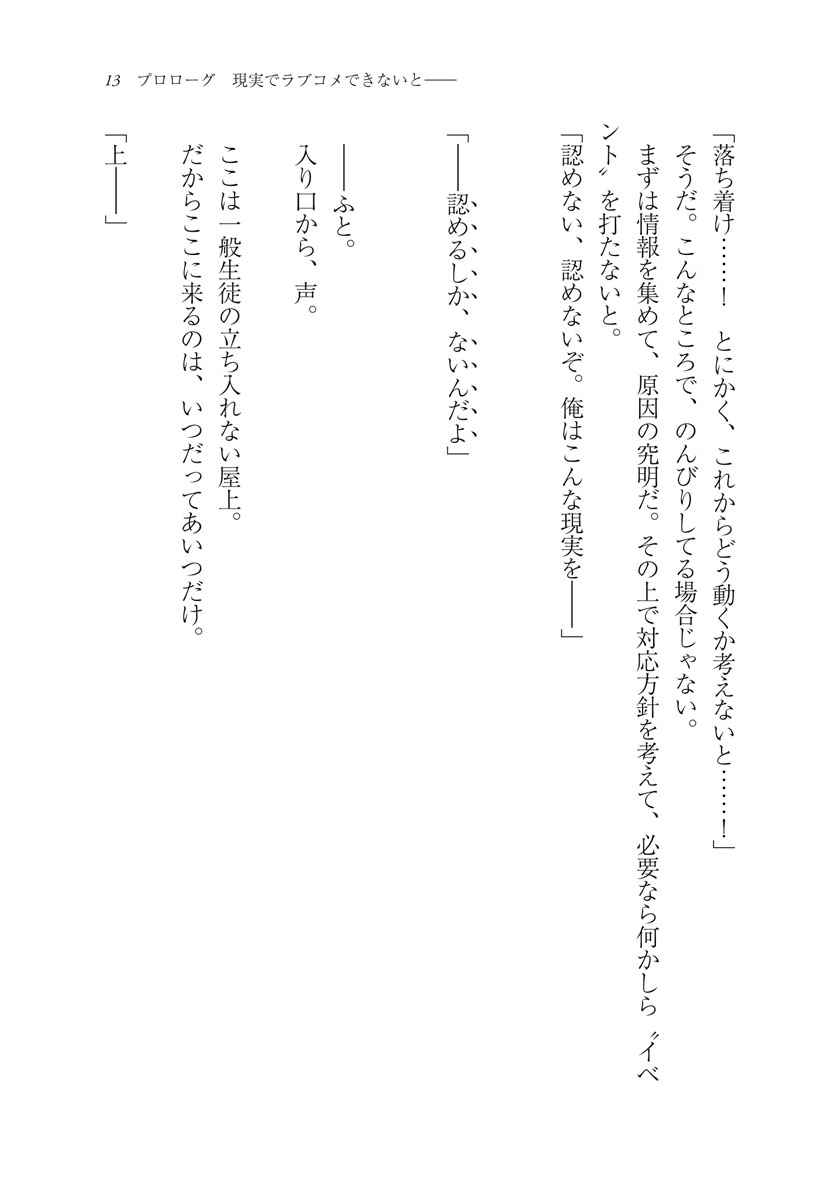 13　プロローグ　現実でラブコメできないと──
「落ち着け……！　とにかく、これからどう動くか考えないと……！」
そうだ。こんなところで、のんびりしてる場合じゃない。
まずは情報を集めて、原因の究明だ。その上で対応方針を考えて、必要なら何かしら〝イベ
ント〟を打たないと。
「認めない、認めないぞ。俺はこんな現実を──」
「──認めるしか、ないんだよ」
──ふと。
入り口から、声。
ここは一般生徒の立ち入れない屋上。
だからここに来るのは、いつだってあいつだけ。
「上──」